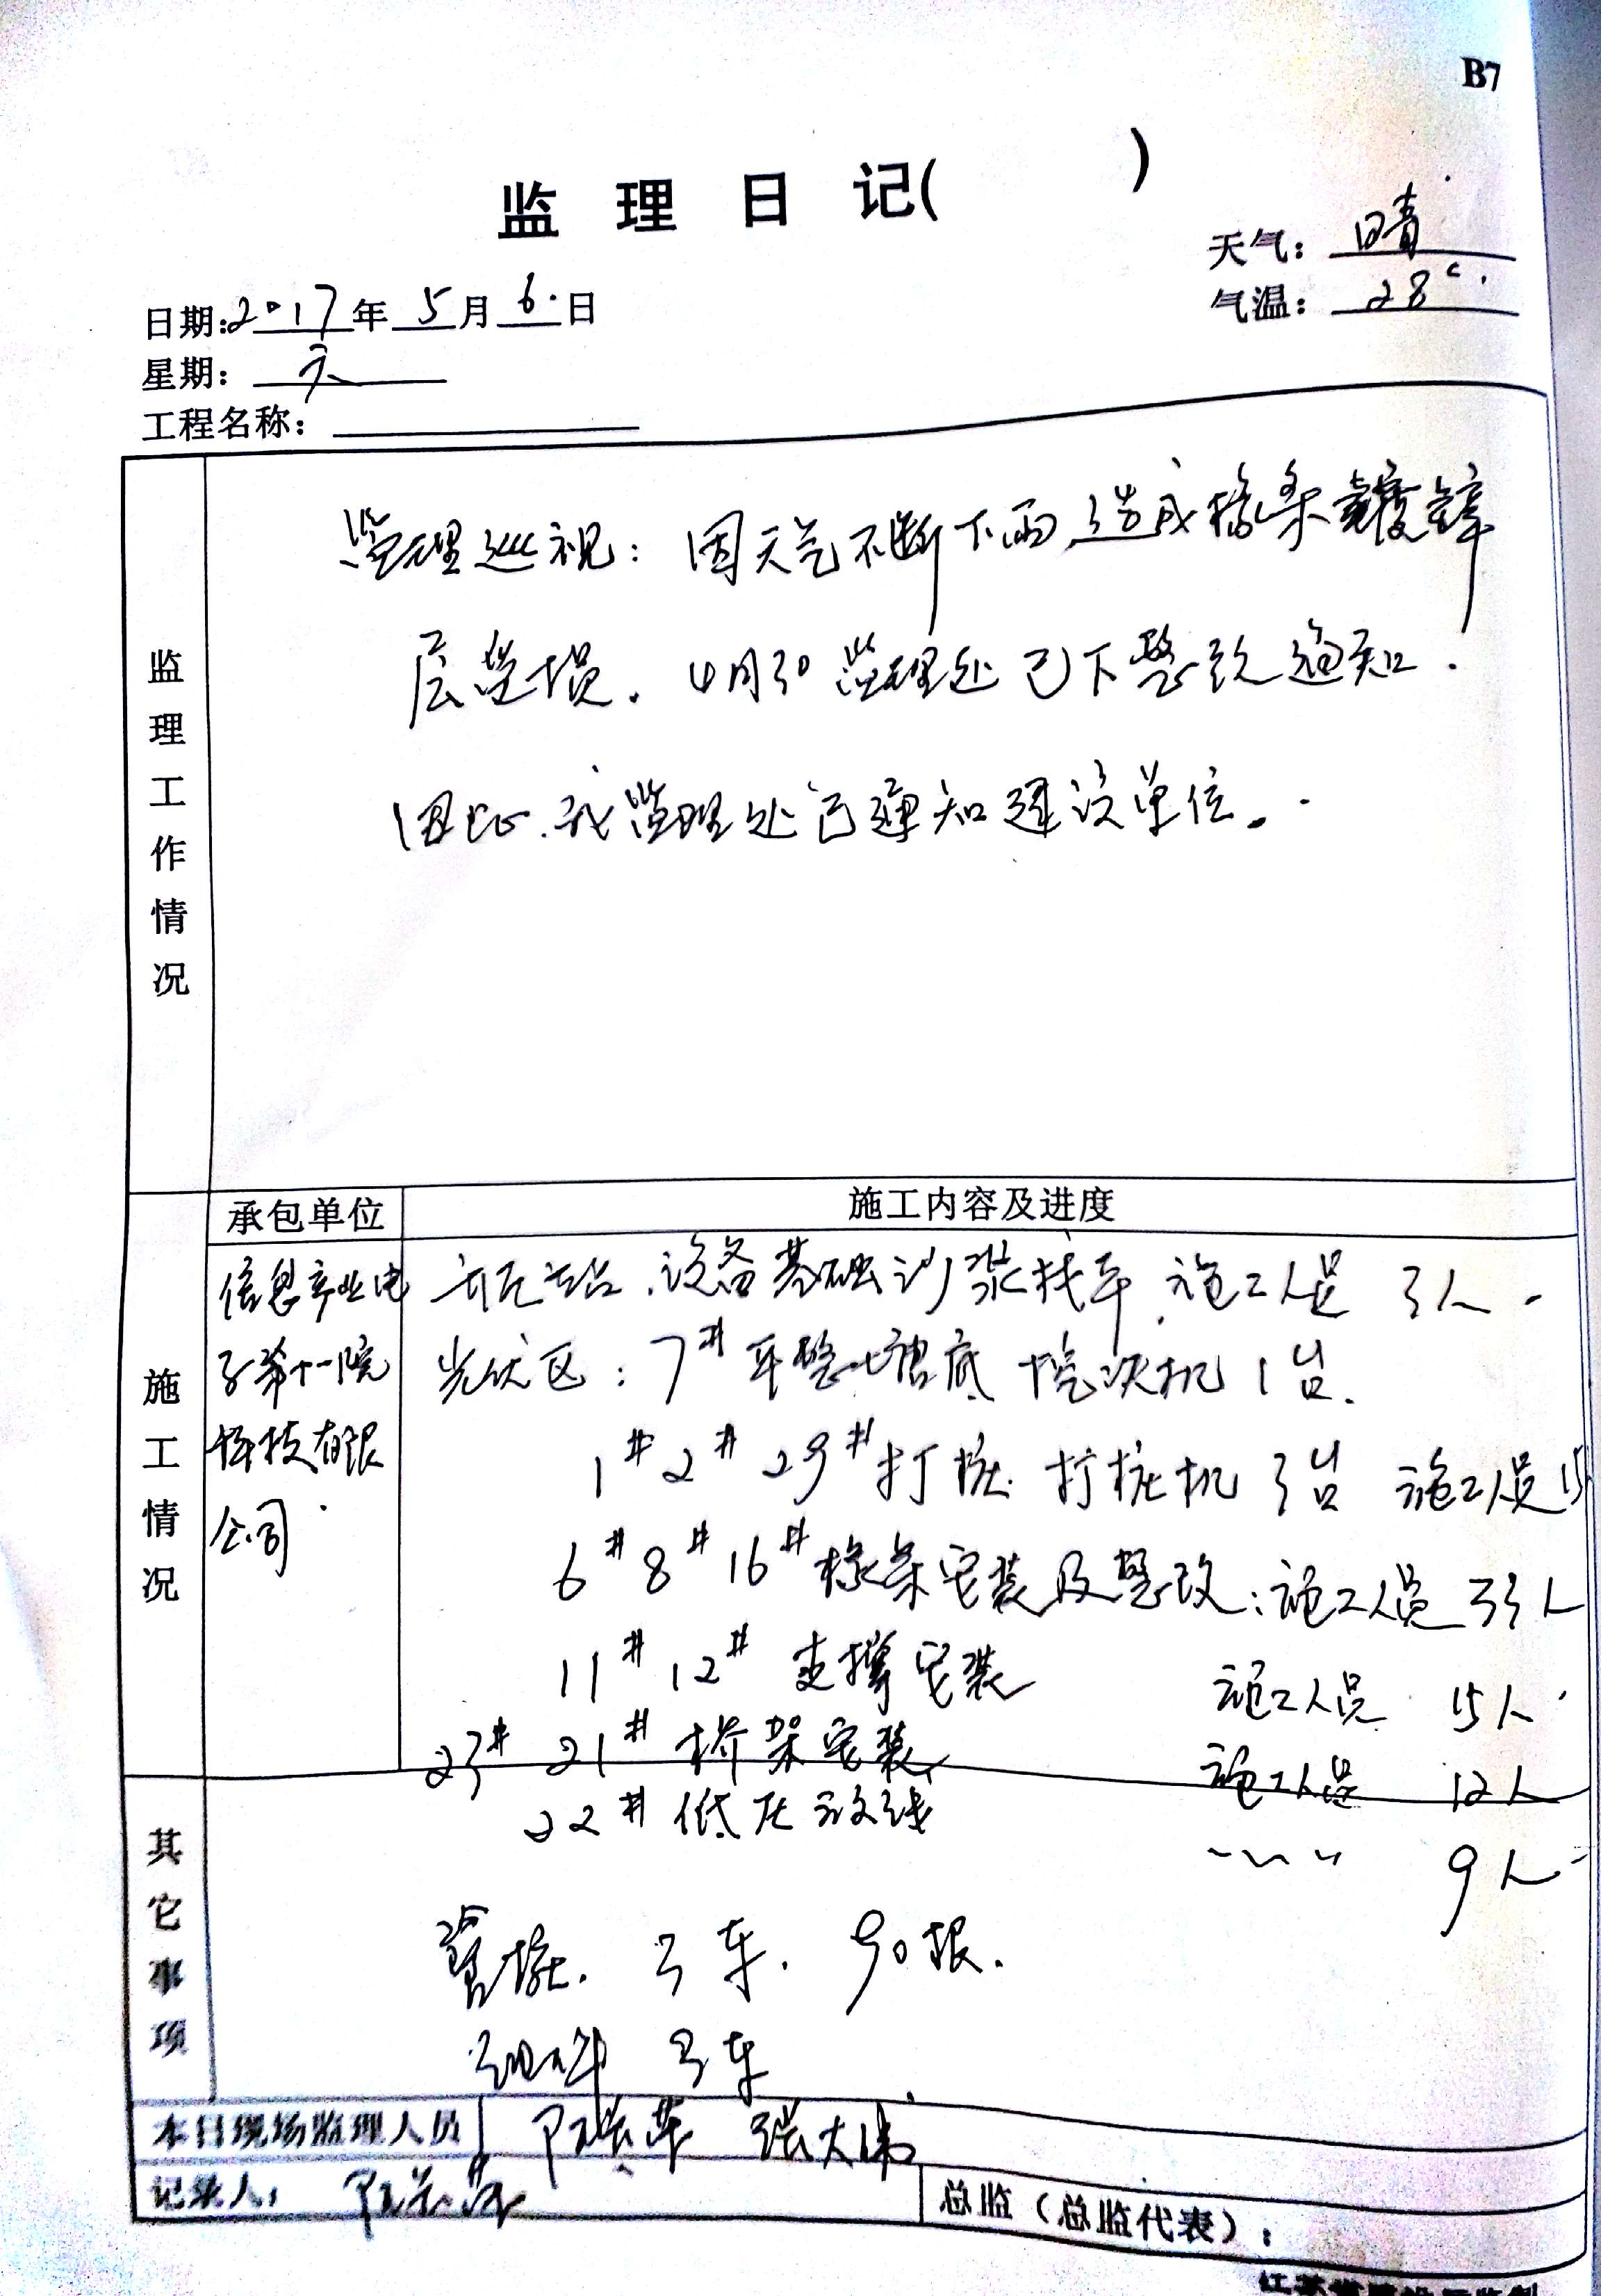 B7
监理日记( )
天气：晴
气温：28℃.
日期:2017年5月6.日
星期：六
工程名称：
监理工作情况
监理巡视：因天气不断下雨,造成檩条镀锌
层受损．4月30监理处已下整改通知．
因此.我监理处已通知建设单位。
施工情况
承包单位
施工内容及进度
信息产业电
子第十一院
科技有限
公司
升压站.设备基础沙浆找平.施工人员 3人.
光伏区：7#平整塘底 挖机1台.
1# 2# 29#打桩. 打桩机 3台 施工人员15
6# 8# 16#檩条安装及整改:施工人员 33人
11# 12# 支撑安装 施工人员 15人
23# 21# 桥架安装 施工人员 12人
22# 低压放线 〃 〃 〃 9人
其它事项
管桩. 3车. 90根.
3车
本日现场监理人员 张大
记录人：
总监（总监代表）：